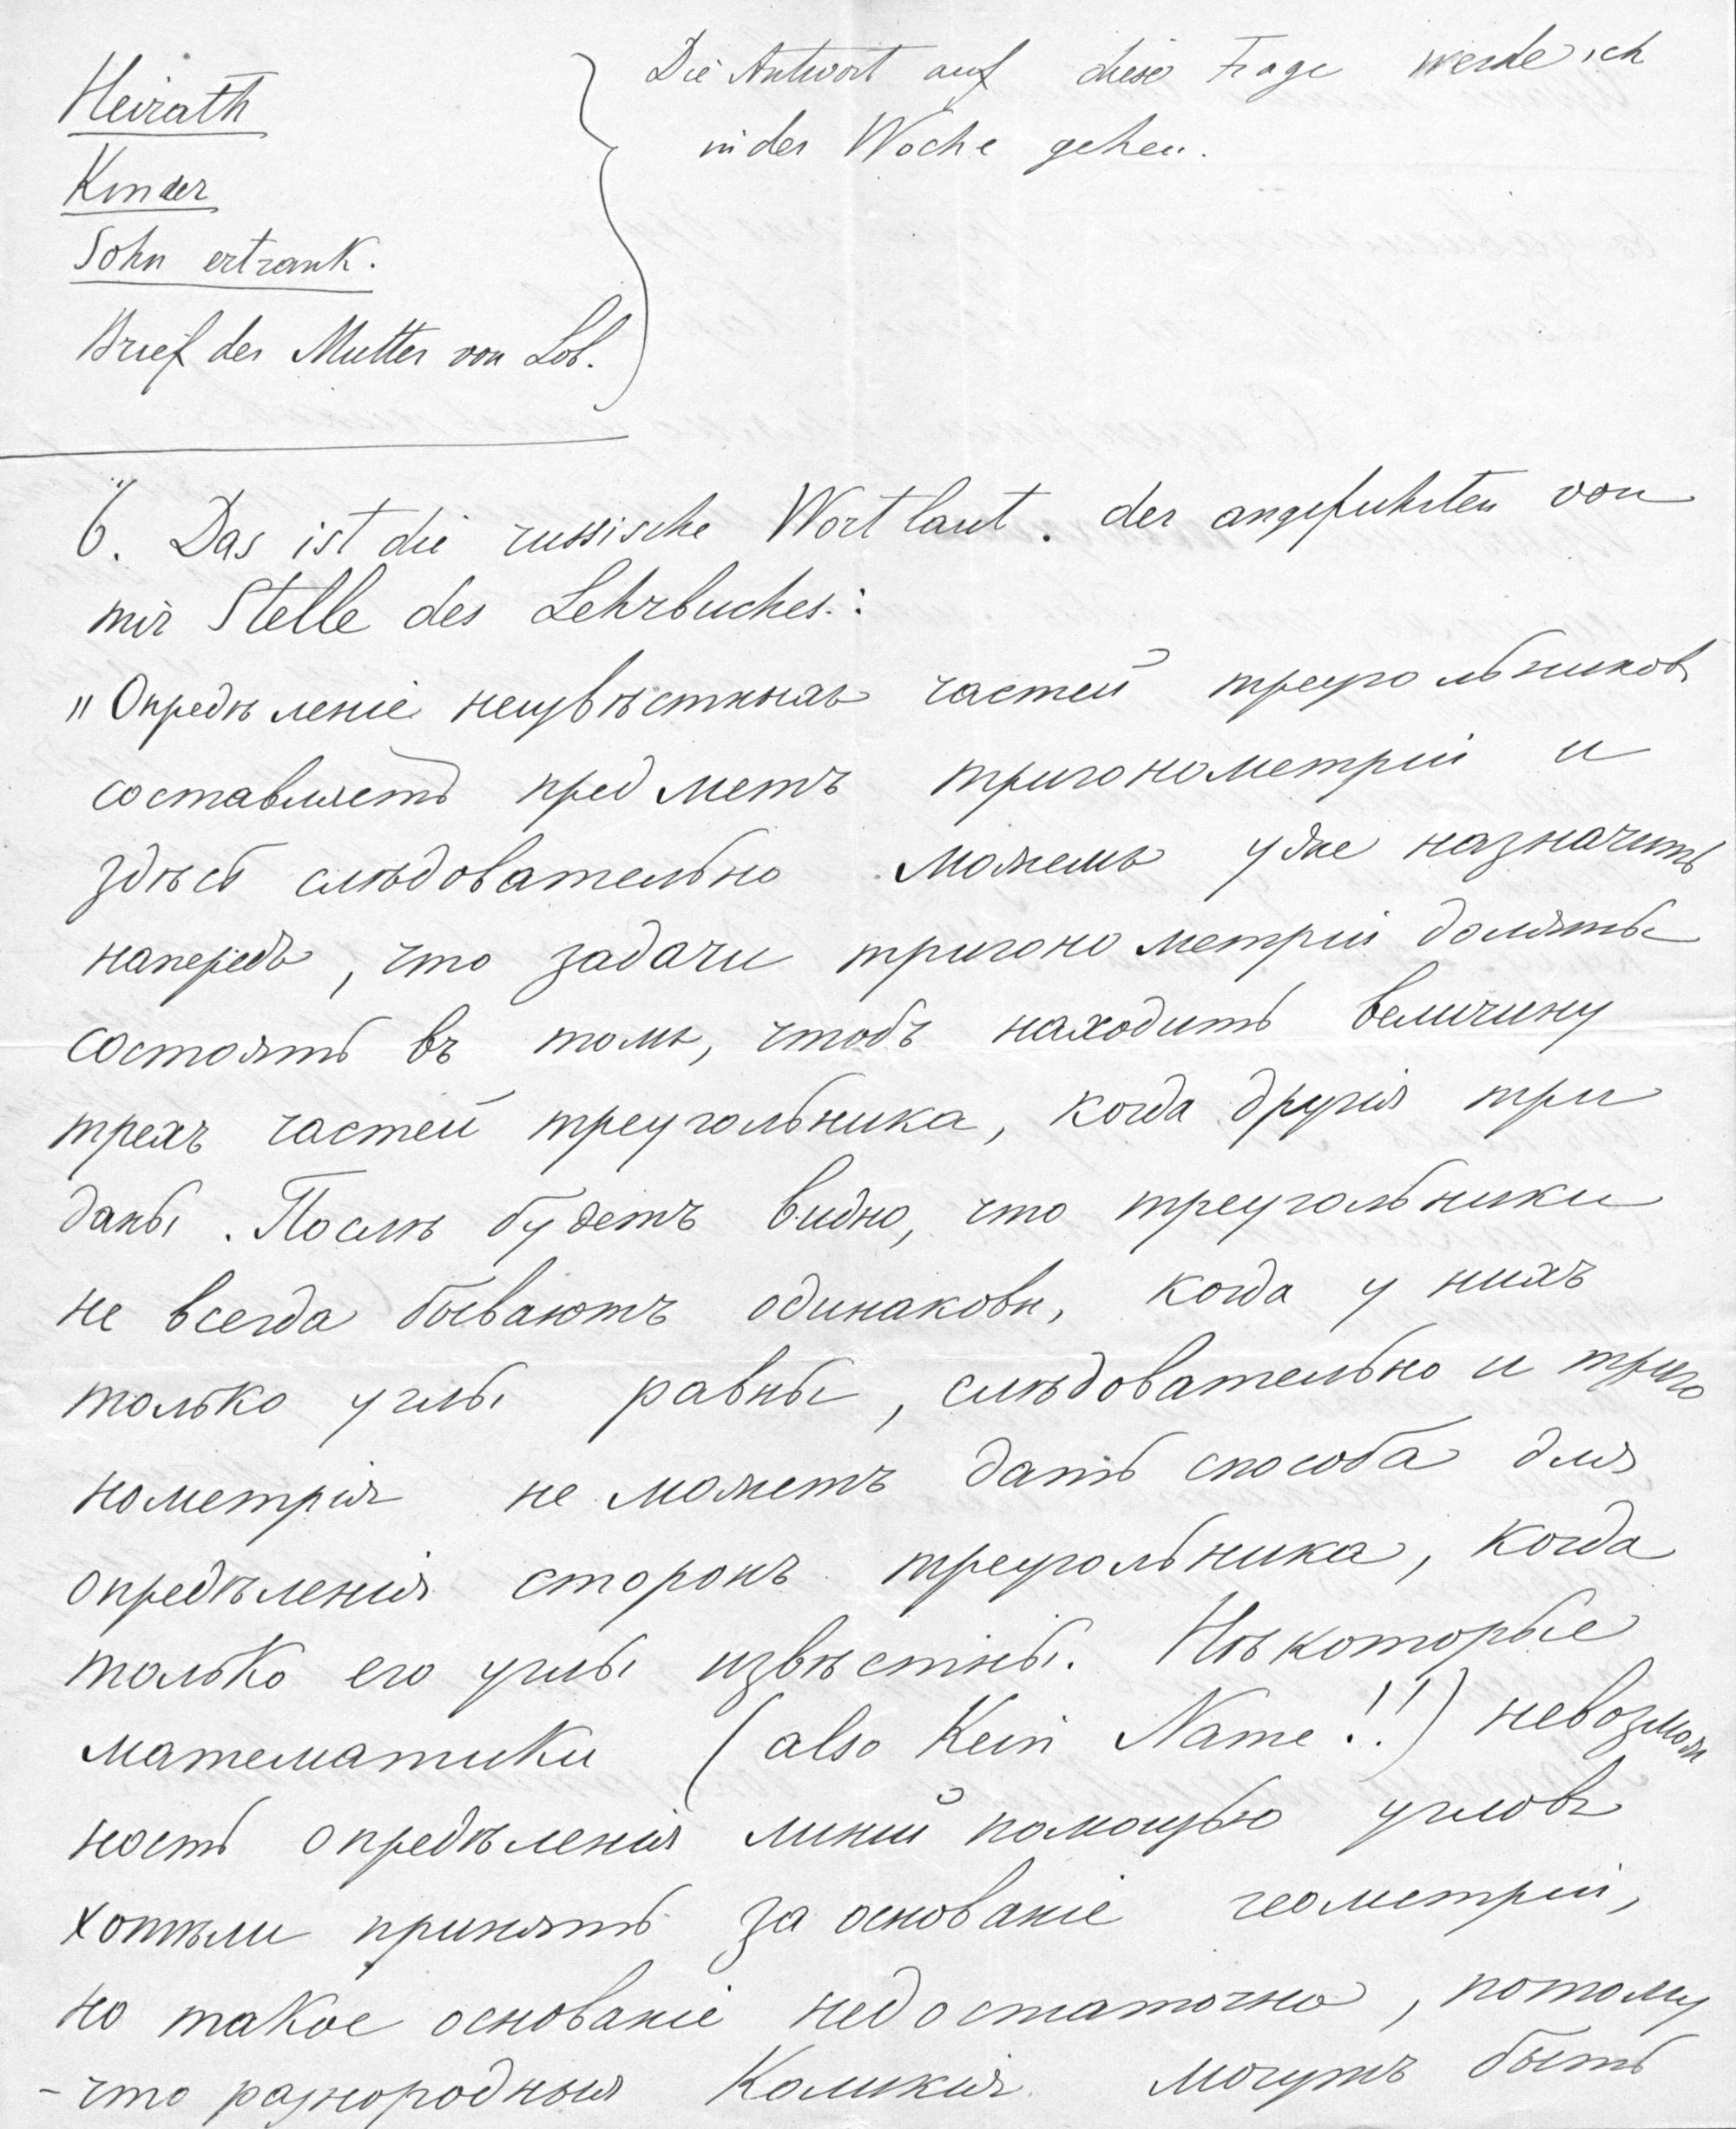 Heirath
Kinder
Sohn ertrank.
Brief der Mutter von Lob.
Die Antwort auf diese Frage werde ich
in der Woche geben.
6. Das ist die russische Wortlaut. der angefuhrten von
mir Stelle des Lehrbuches.:
„Опредѣленіе неизвѣстныхъ частей треугольниковъ
составляетъ предметъ тригонометріи и
здѣсь слѣдовательно можемъ уже назначить
напередъ, что задачи тригонометріи должны
состоять въ томъ, чтобъ находить величину
трехъ частей треугольника, когда другія три
даны. Послѣ будетъ видно, что треугольники
не всегда бываютъ одинаковы, когда у нихъ
только углы равны, слѣдовательно и триго
нометрія не можетъ дать способа для
опредѣленія сторонъ треугольника, когда
только его углы извѣстны. Нѣкоторые
математики (also kein Name!!) невозмож
ность опредѣленія линій помощью угловъ
хотѣли принять за основаніе геометріи,
но такое основаніе недостаточно, потому
-что разнородныя могутъ быть